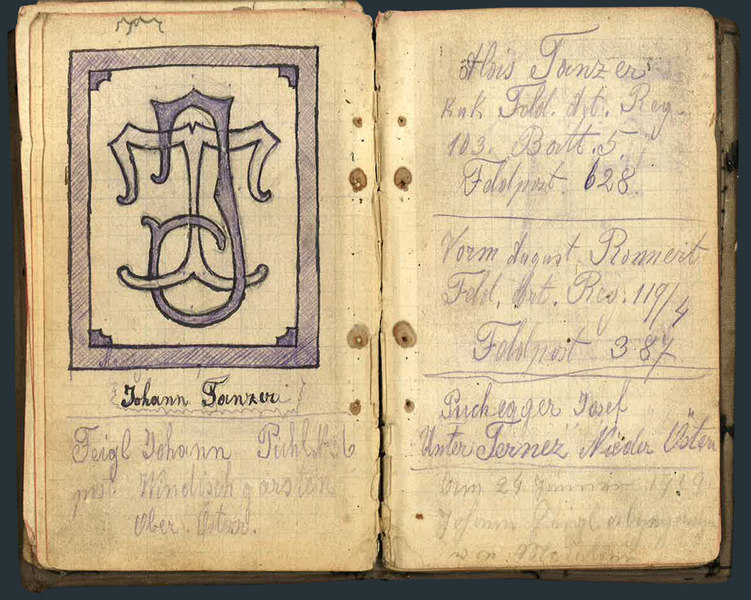 Johann Tanzer
Feigl Johann Pichl No 36
post Windischgarsten
Ober. Öster.
Alois Tanzer
kuk Feld. Art. Reg.
103. Batt. 5
Feldpost 628
Vorm August Ronnert
Feld. Art. Reg. 119/4
Feldpost 387
Puchegger Josef
Unter Ternez Nieder Östen
Am 29 Januar 1919
Johann Feigl
von